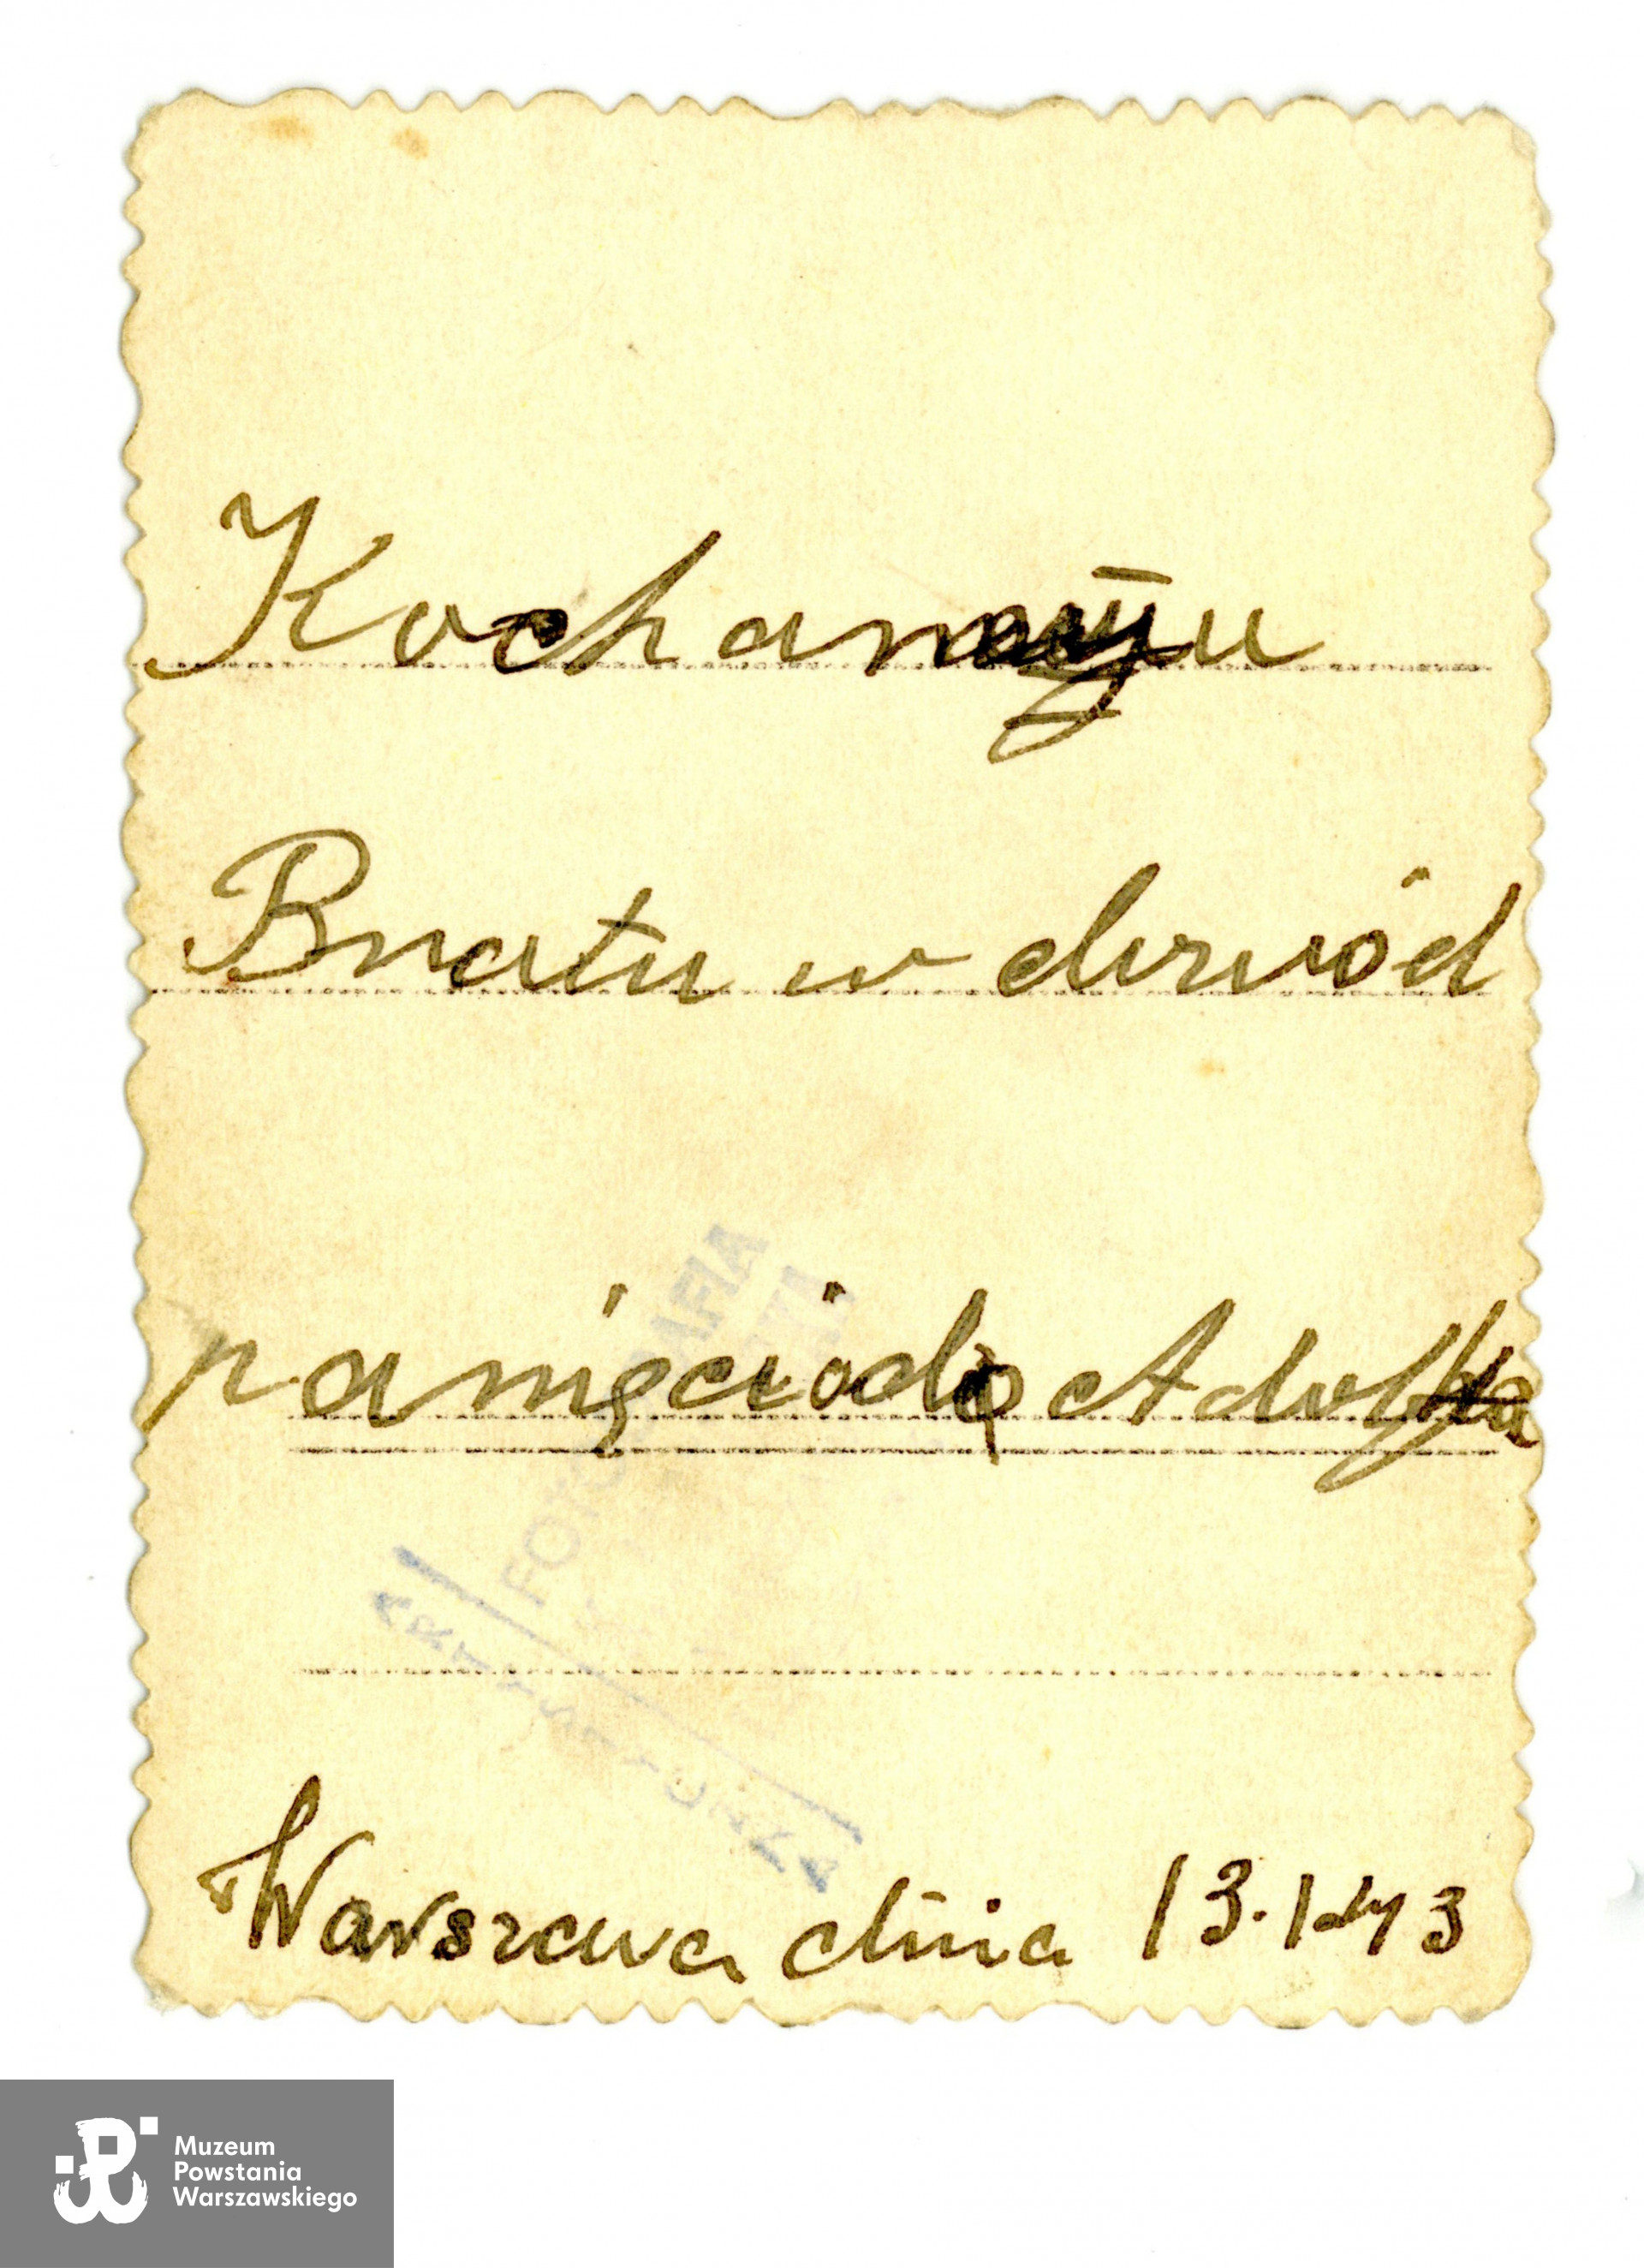 Kochanemu
Bratu w dowód
pamięci od Adolfka
FOTOGRAFIA
ARTYSTYCZNA
Warszawa dnia 13.I.43
Muzeum
Powstania
Warszawskiego